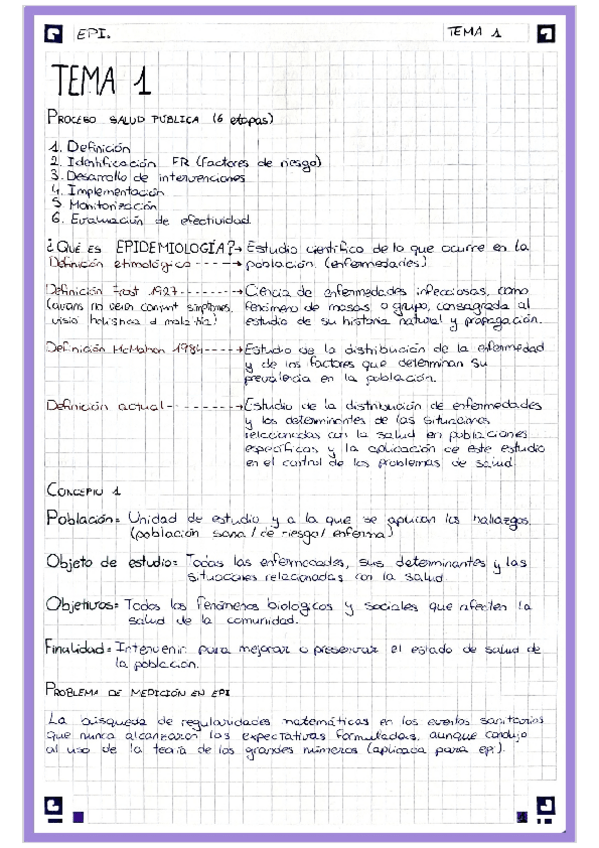 EPI.
TEMA 1
TEMA 1
PROCESO SALUD PÚBLICA (6 etapas)
1. Definición
2. Identificación FR (factores de riesgo)
3. Desarrollo de intervenciones
4. Implementación
5 Monitorización
6. Evaluación de efectividad
¿QUÉ ES EPIDEMIOLOGÍA?→ Estudio científico de lo que ocurre en la
Definición etimológica ------→ población. (enfermedades)
Definición Frost 1927 ------→ Ciencia de enfermedades infecciosas, como
no veien conjunt símptomes, fenómeno de masas o grupo, consagrada al
visió holística d malaltia) estudio de su historia natural y propagación.
Definición McMahon 1984 -----→ Estudio de la distribución de la enfermedad
y de los factores que determinan su
prevalencia en la población.
Definición actual --------→ Estudio de la distribución de enfermedades
y los determinantes de las situaciones
relacionadas con la salud en poblaciones
específicas y la aplicación de este estudio
en el control de los problemas de salud
CONCEPTO 1
Población= Unidad de estudio y a la que se aplican los hallazgos.
(población sana / de riesgo / enferma)
Objeto de estudio= Todas las enfermedades, sus determinantes y las
situaciones relacionadas con la salud.
Objetivos= Todos los fenómenos biológicos y sociales que afecten la
salud de la comunidad.
Finalidad= Intervenir para mejorar o preservar el estado de salud de
la población.
PROBLEMA DE MEDICIÓN EN EPI
La búsqueda de regularidades matemáticas en los eventos sanitarios
que nunca alcanzaron las expectativas formuladas, aunque condujo
al uso de la teoría de los grandes números (aplicada para epi).